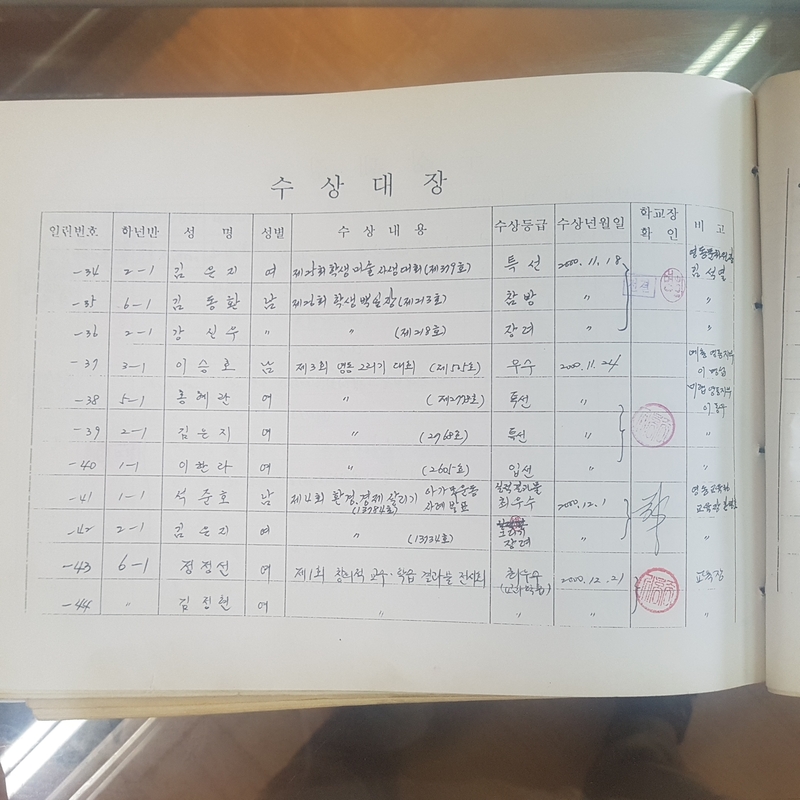 수 상 대 장
일련번호 학년반 성 명 성별 수 상 내 용 수상등급 수상년월일 학교장 확 인 비 고
-34 2-1 김 은 지 여 제29회 학생 미술 사생대회 (제379호) 특선 2000.11.18 김석열
-35 6-1 김 동 환 남 학생 백일장 (제213호) 참방 〃
-36 2-1 강 신 우 〃 〃 (제218호) 장려 〃 〃
-37 3-1 이 승 호 남 제3회 영동 그리기 대회 (제525호) 우수 2000.11.24
-38 5-1 홍 혜 란 여 〃 특선 〃
-39 2-1 김 은 지 여 〃 (2768호) 특선 〃 〃
-40 1-1 이 한 라 여 〃 (2605호) 입선 〃 〃
-41 1-1 석 준 호 남 제4회 환경.경제 살리기 아가모운동 사례발표 (13784호) 실적결과물 최우수 2000.12.1
-42 2-1 김 은 지 여 〃 (13734호) 장려 〃 〃
-43 6-1 정 정 선 여 제1회 창의적 교수·학습 결과물 전시회 최우수 2000.12.21 교육장
-44 〃 김 정 현 여 〃 〃 〃 〃